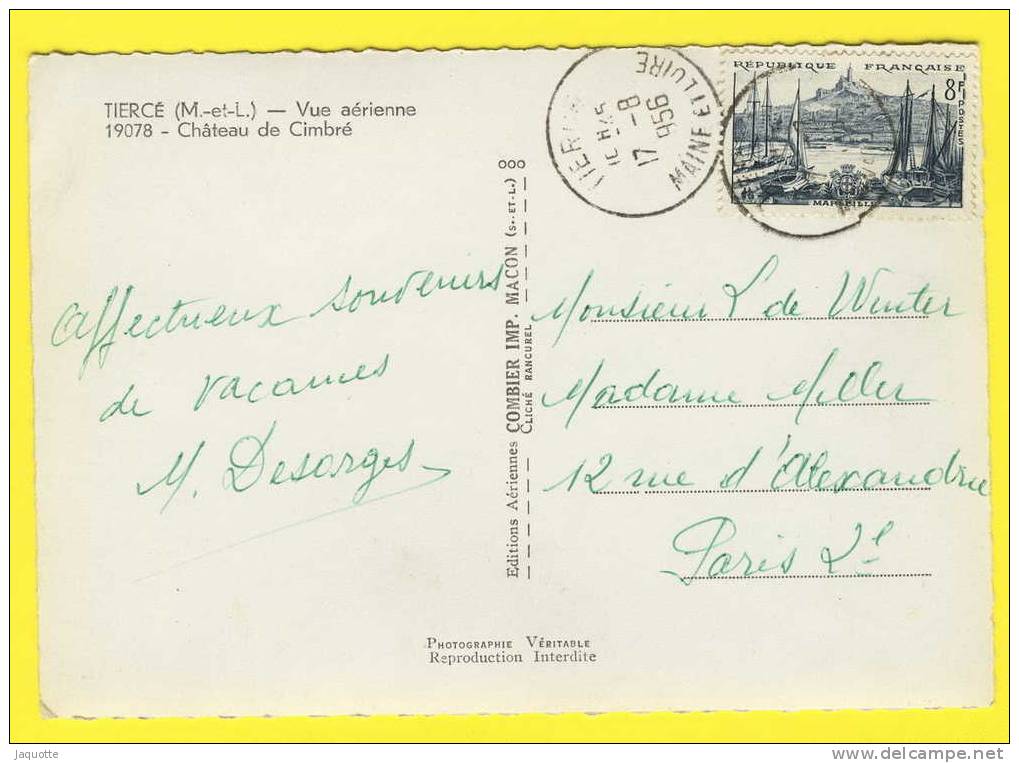 TIERCÉ (M.-et-L.) — Vue aérienne
19078 - Château de Cimbré
17 - 8
956
MAINE ET LOIRE
RÉPUBLIQUE FRANÇAISE
8F
POSTES
MARSEILLE
Affectueux souvenirs
de vacances
M. Desorges
Editions Aériennes COMBIER IMP. MACON (S.-ET-L.) ooo
CLICHÉ RANCUREL
Monsieur L de Winter
Madame Miller
12 rue d'Alexandrie
Paris 2e
PHOTOGRAPHIE VÉRITABLE
Reproduction Interdite
Jaquotte
www.delcampe.net